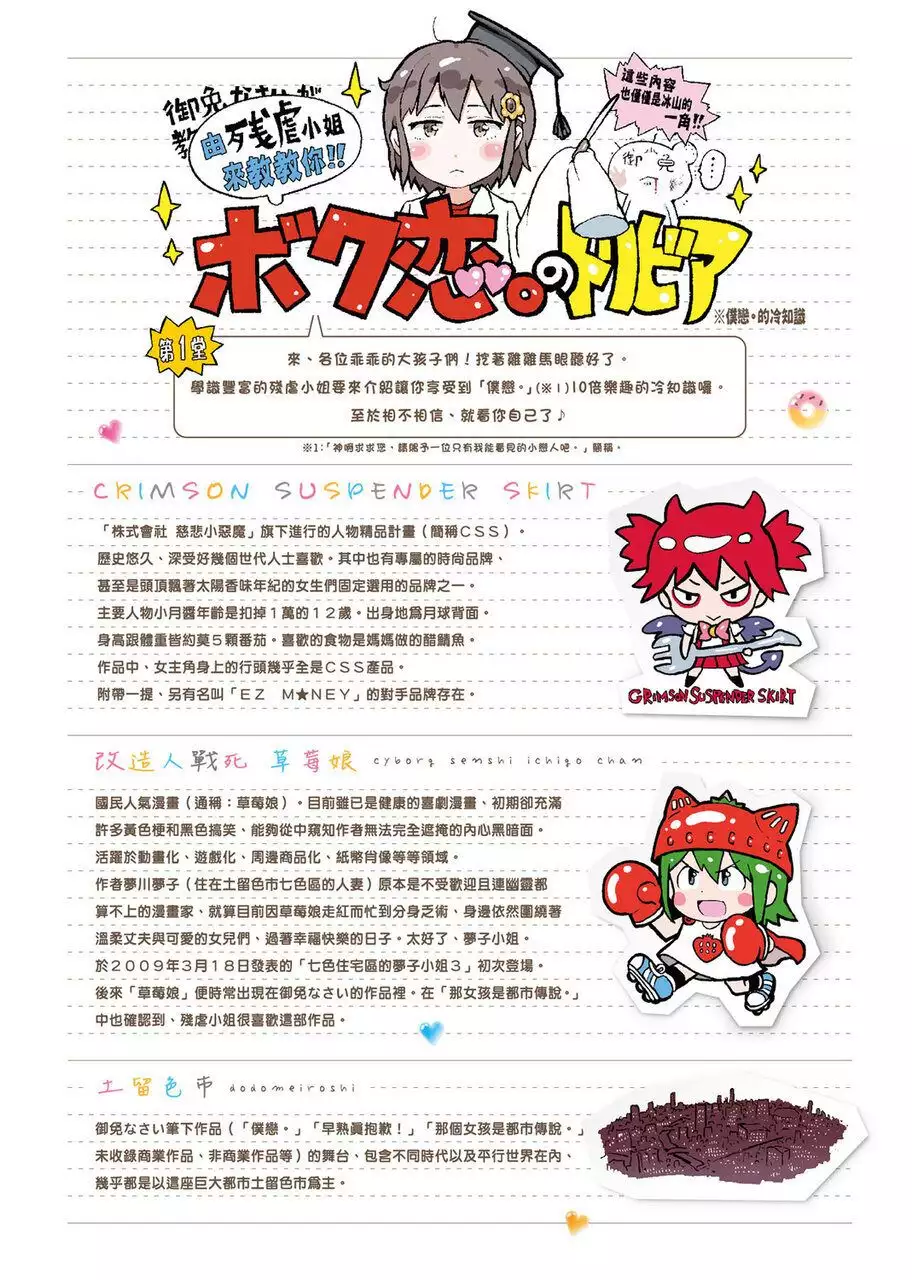 御免なさいが
教
由残虐小姐
來教教你!!
這些內容
也僅僅是冰山的
一角!!
御免
…
ボク恋。のトリビア
※僕戀。的冷知識
第1堂
來、各位乖乖的大孩子們！挖著雞雞馬眼聽好了。
學識豐富的殘虐小姐要來介紹讓你享受到「僕戀。」(※1)10倍樂趣的冷知識囉。
至於相不相信、就看你自己了♪
※1：「神啊求求您、請賜予一位只有我能看見的小戀人吧。」簡稱。
CRIMSON SUSPENDER SKIRT
「株式會社 慈悲小惡魔」旗下進行的人物精品計畫（簡稱CSS）。
歷史悠久、深受好幾個世代人士喜歡。其中也有專屬的時尚品牌、
甚至是頭頂飄著太陽香味年紀的女生們固定選用的品牌之一。
主要人物小月醬年齡是扣掉1萬的12歲。出身地為月球背面。
身高跟體重皆約莫5顆番茄。喜歡的食物是媽媽做的醋鯖魚。
作品中、女主角身上的行頭幾乎全是CSS產品。
附帶一提、另有名叫「EZ M★NEY」的對手品牌存在。
CRIMSON SUSPENDER SKIRT
改造人戰死 草莓娘 cyborg senshi ichigo chan
國民人氣漫畫（通稱：草莓娘）。目前雖已是健康的喜劇漫畫、初期卻充滿
許多黃色梗和黑色搞笑、能夠從中窺知作者無法完全遮掩的內心黑暗面。
活躍於動畫化、遊戲化、周邊商品化、紙幣肖像等等領域。
作者夢川夢子（住在土留色市七色區的人妻）原本是不受歡迎且連幽靈都
算不上的漫畫家、就算目前因草莓娘走紅而忙到分身乏術、身邊依然圍繞著
溫柔丈夫與可愛的女兒們、過著幸福快樂的日子。太好了、夢子小姐。
於2009年3月18日發表的「七色住宅區的夢子小姐3」初次登場。
後來「草莓娘」便時常出現在御免なさい的作品裡。在「那女孩是都市傳說。」
中也確認到、殘虐小姐很喜歡這部作品。
土留色市 dodomeiroshi
御免なさい筆下作品（「僕戀。」「早熟真抱歉！」「那個女孩是都市傳說。」
未收錄商業作品、非商業作品等）的舞台、包含不同時代以及平行世界在內、
幾乎都是以這座巨大都市土留色市為主。